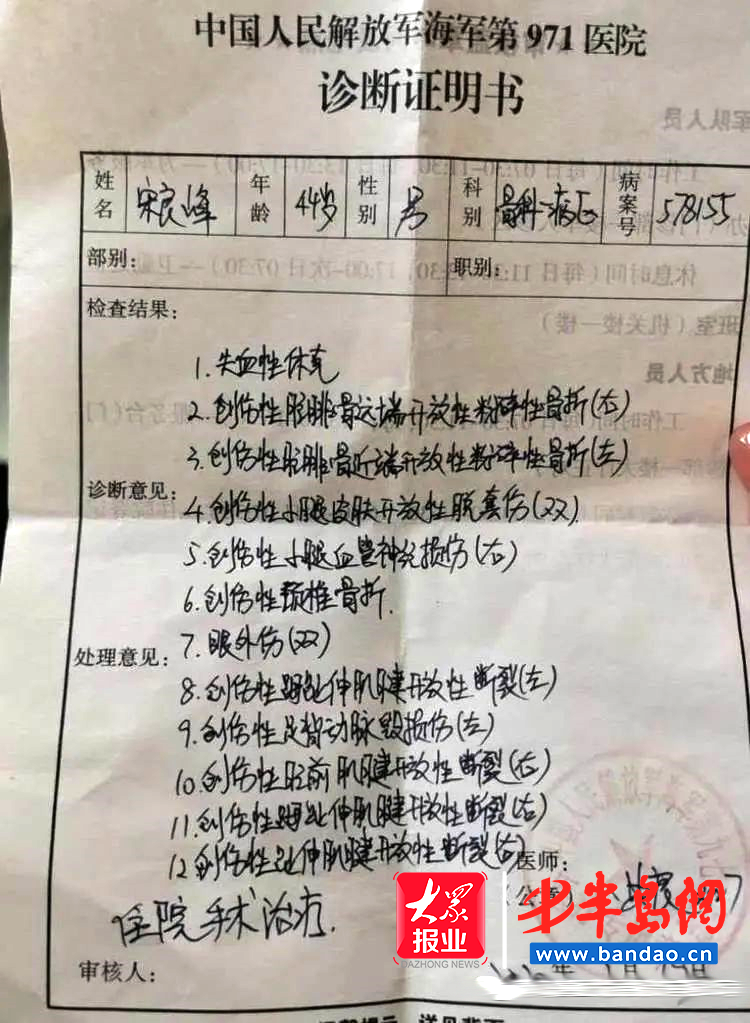 中国人民解放军海军第971医院
诊断证明书
姓名 宋良峰 年龄 44岁 性别 男 科别 骨科一病区 病案号 578155
部别： 职别：
检查结果：
1.失血性休克
2.创伤性胫腓骨远端开放性粉碎性骨折(右)
3.创伤性胫腓骨近端开放性粉碎性骨折(左)
诊断意见：
4.创伤性小腿皮肤开放性脱套伤(双)
5.创伤性小腿血管神经损伤(右)
6.创伤性颈椎骨折.
处理意见：
7.眼外伤(双)
8.创伤性踇趾伸肌腱开放性断裂(左)
9.创伤性足背动脉毁损伤(左)
10.创伤性胫前肌腱开放性断裂(右)
11.创伤性踇趾伸肌腱开放性断裂(右)
12.创伤性趾伸肌腱开放性断裂(右)
医师：
(公章)
住院手术治疗.
审核人：
年 月 日
大众报业
DAZHONG NEWS
半岛网
www.bandao.cn